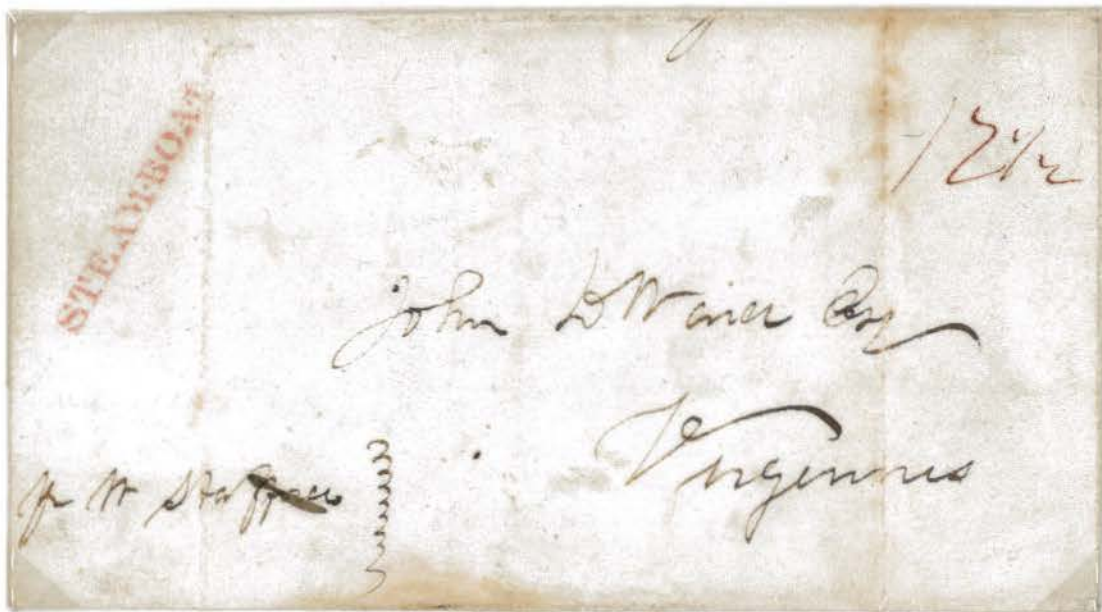 STEAM-BOAT
12 1/2
John D Ward Esq
Vergennes
pr W